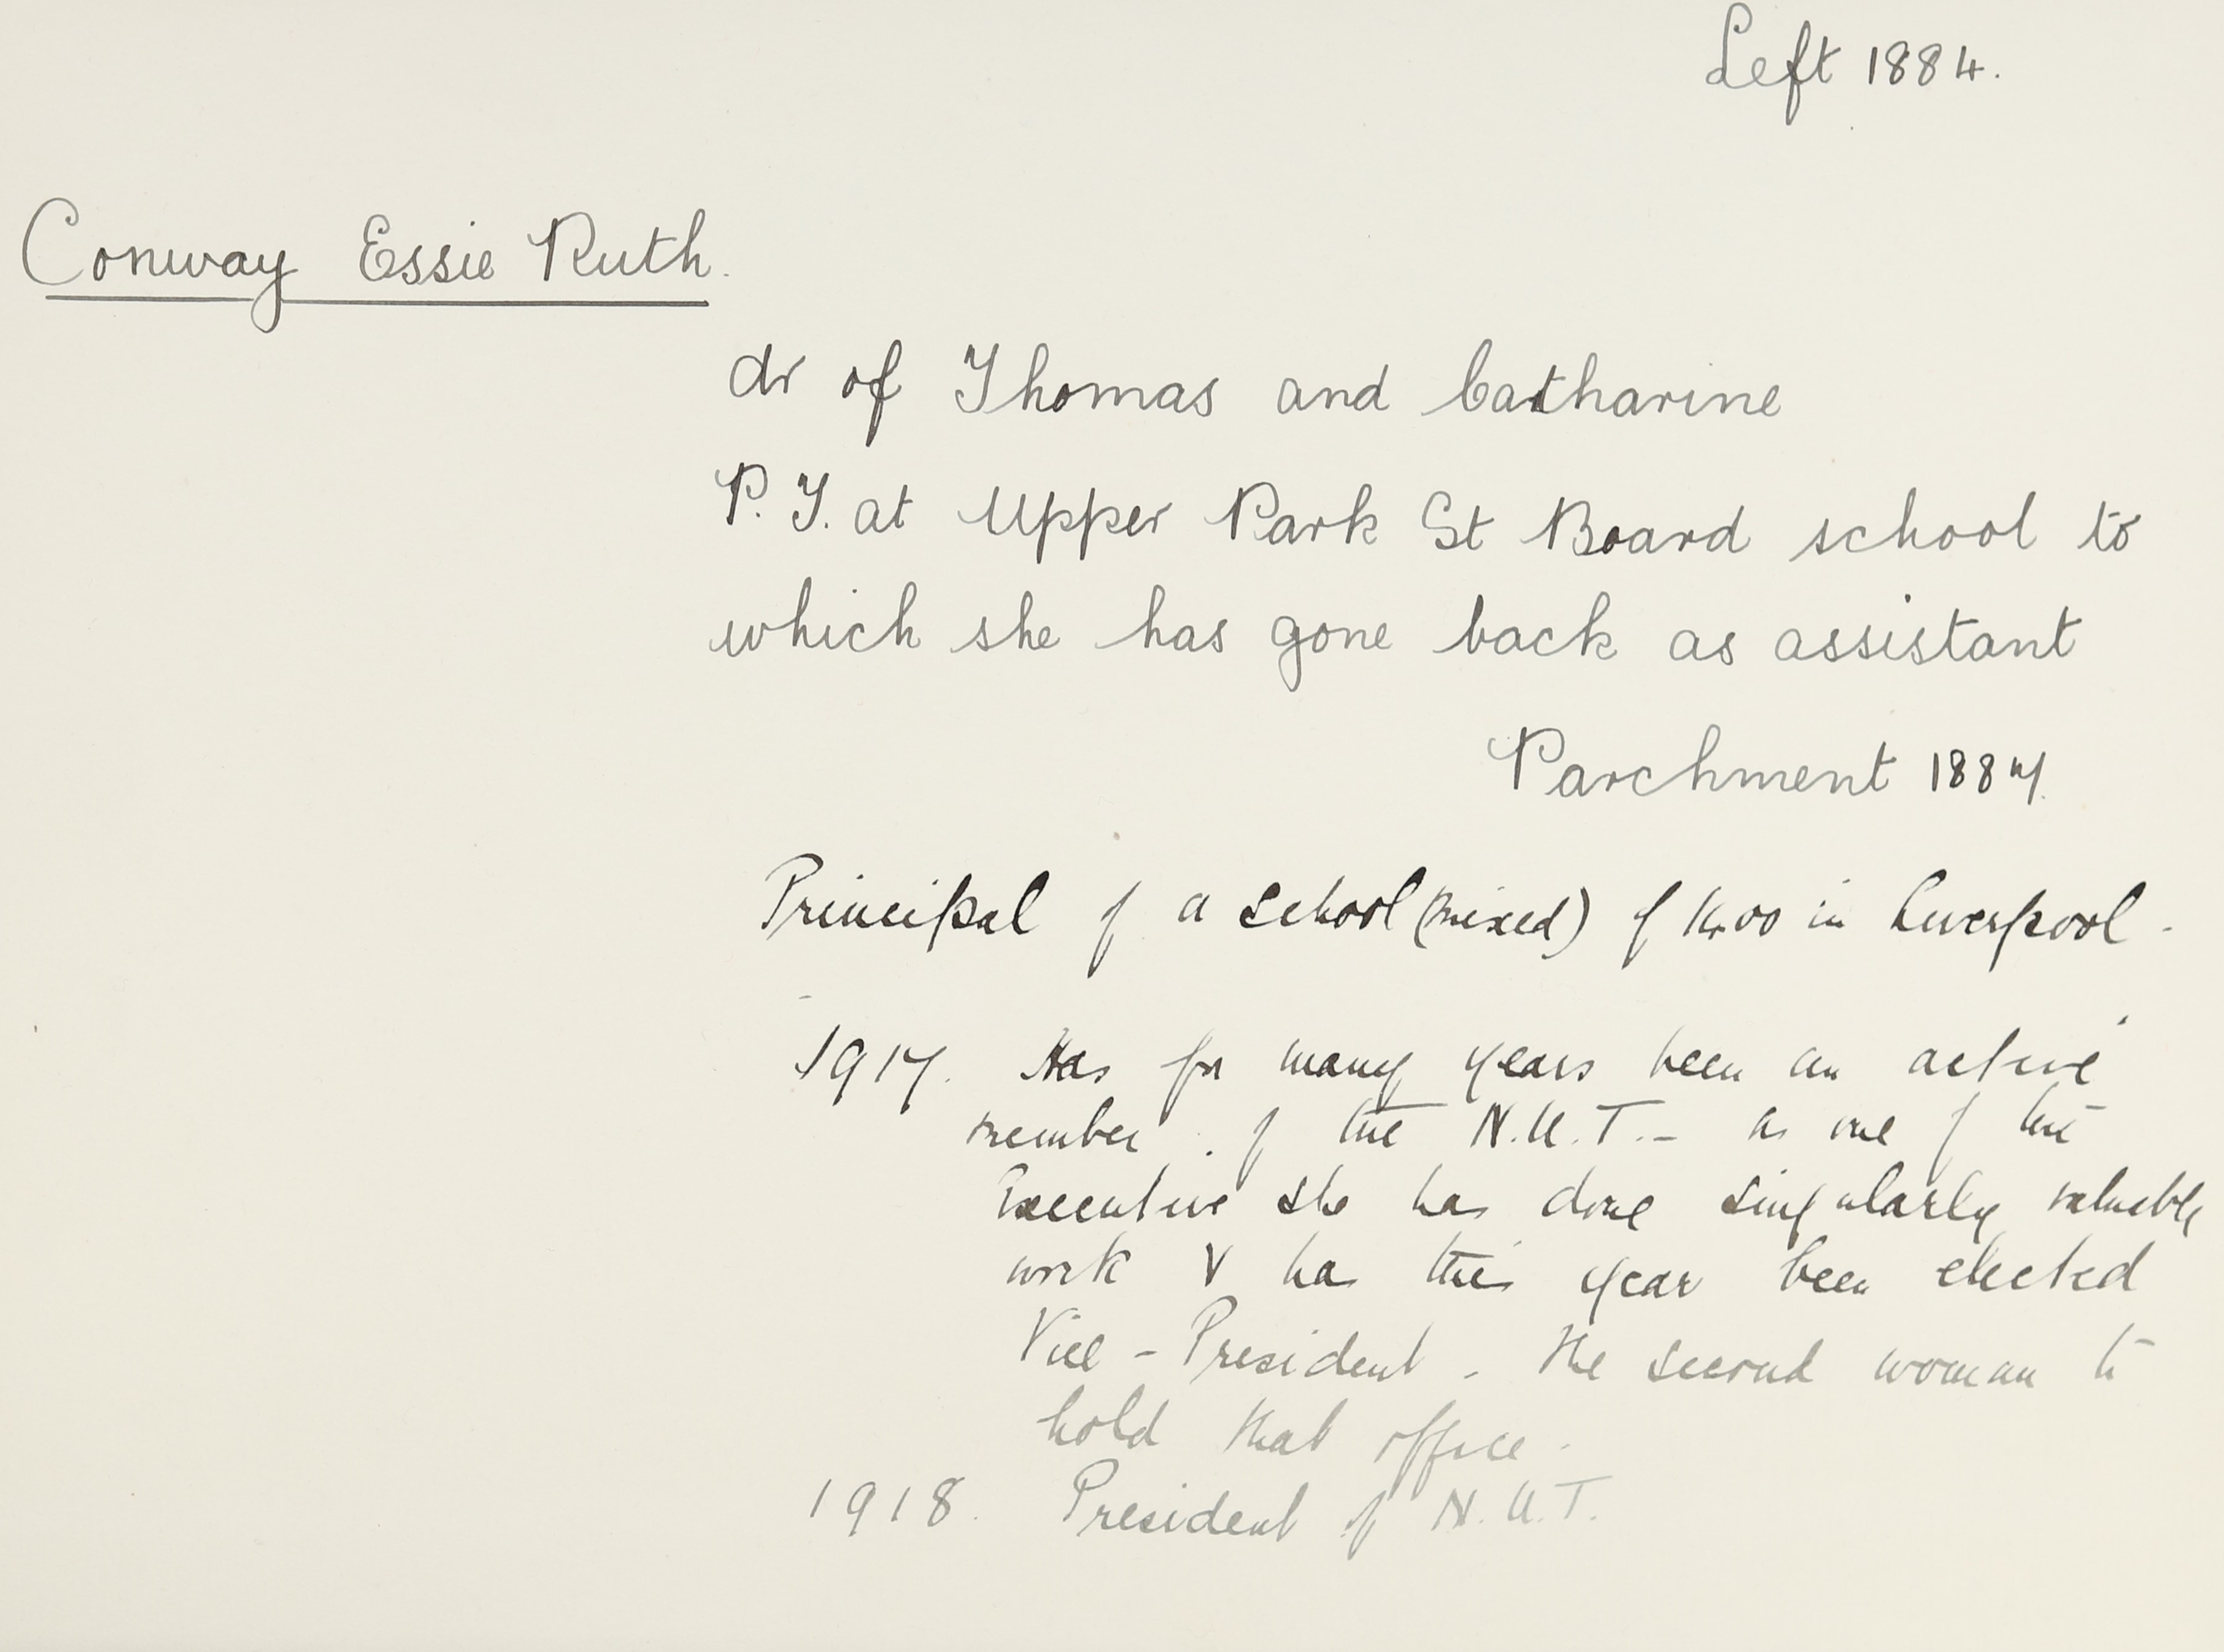 Left 1884.
Conway Essie Ruth.
dr of Thomas and Catharine
P.T. at Upper Park St Board school to
which she has gone back as assistant
Parchment 1887.
Principal of a school (mixed) of 1400 in Liverpool -
1917. Has for many years been an active
member of the N.U.T. - as one of the
Executive she has done singularly valuable
work & has this year been elected
Vice - President - the second woman to
hold that office.
1918. President of N.U.T.